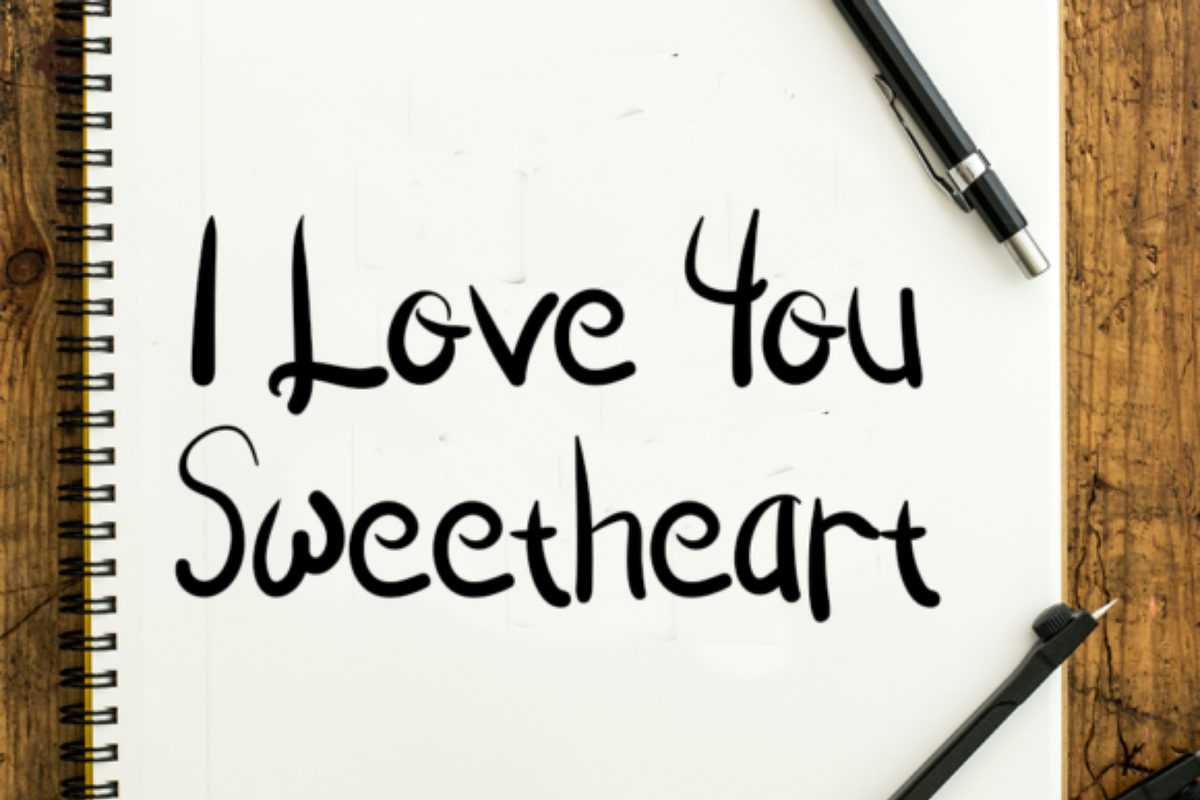 I Love You
Sweetheart